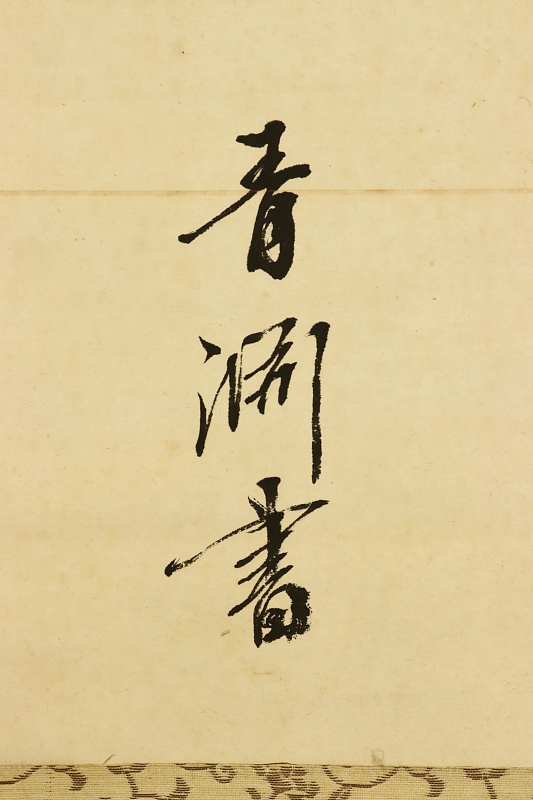 青淵書